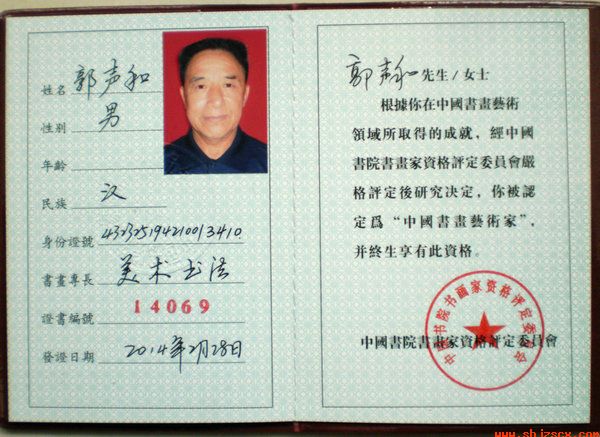 姓名 郭声和
性别 男
年齡
民族 汉
身份證號
書畫專長 美术 书法
證書編號 14069
發證日期 2014年2月28日
郭声和 先生/女士
根據你在中國書畫藝術
領域所取得的成就，經中國
書院書畫家資格評定委員會嚴
格評定後研究決定，你被認
定爲“中國書畫藝術家”，
并終生享有此資格。
中國書院書畫家資格評定委員會
中国书院书画家资格评定委员会
www.shizscx.com